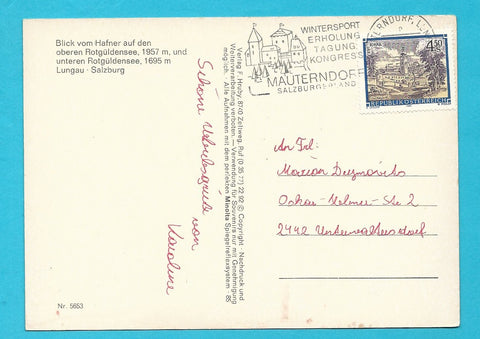 Blick vom Hafner auf den
oberen Rotgüldensee, 1957 m, und
unteren Rotgüldensee, 1695 m
Lungau - Salzburg
Schöne Urlaubsgrüße von
Karoline
Nr. 5653
Verlag F. Hruby, 8740 Zeltweg, Ruf (0 35 77) 22 92 © Copyright - Nachdruck und
Weiterverarbeitung verboten. — Verwendung für Souvenirs nur mit Genehmigung
möglich. - Alle Aufnahmen mit dem perfekten Minolta Spiegelreflexsystem - 85
WINTERSPORT
ERHOLUNG
TAGUNG
KONGRESS
MAUTERNDORF
SALZBURGERLAND
4.50
REPUBLIK ÖSTERREICH
An Frl.
Marion
2442 Unterwaltersdorf